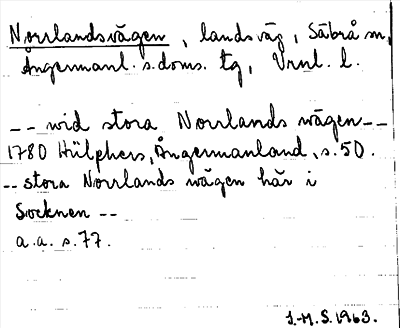 Norrlandsvägen, landsväg, Säbrå sn,
Ångermanl. s. doms. tg, Vrnl. l.
-- wid stora Norrlands wägen--
1780 Hülphers, Ångermanland, s. 50.
-- stora Norrlands wägen här i
Socknen --
a.a. s. 77.
I.-M. S. 1963.